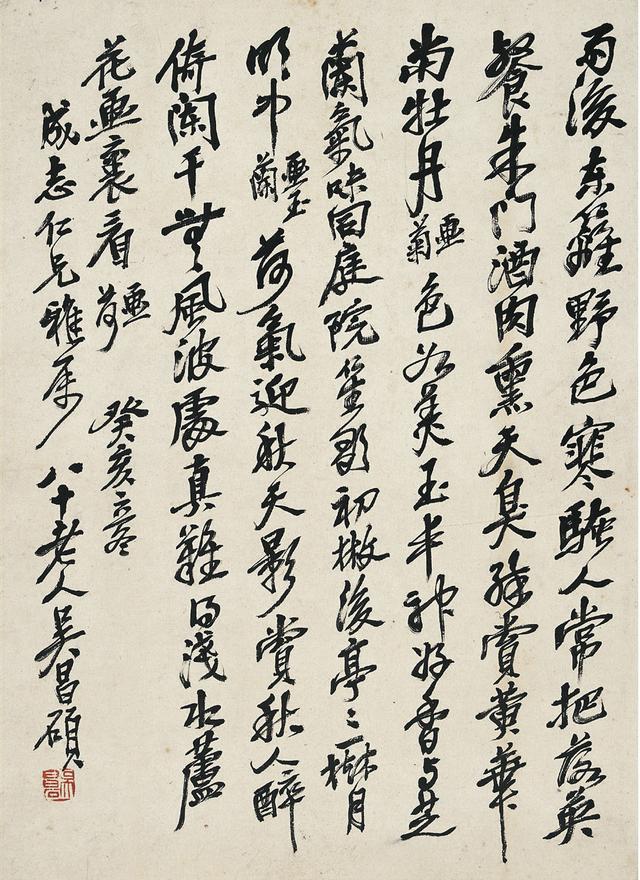 雨後东籬野色寒騷人常把落英
餐朱門酒肉熏天臭除賞黃華
尚牡丹畫菊色如美玉丰神好香与芝
蘭氣味同庭院笙歌初撤後亭亭一樹月
明中畫玉蘭荷氣迎秋天影賞秋人醉
倚闌干無風波處真難得淺水蘆
花畫裏看畫荷
癸亥立冬
成志仁兄雅屬八十老人吳昌碩